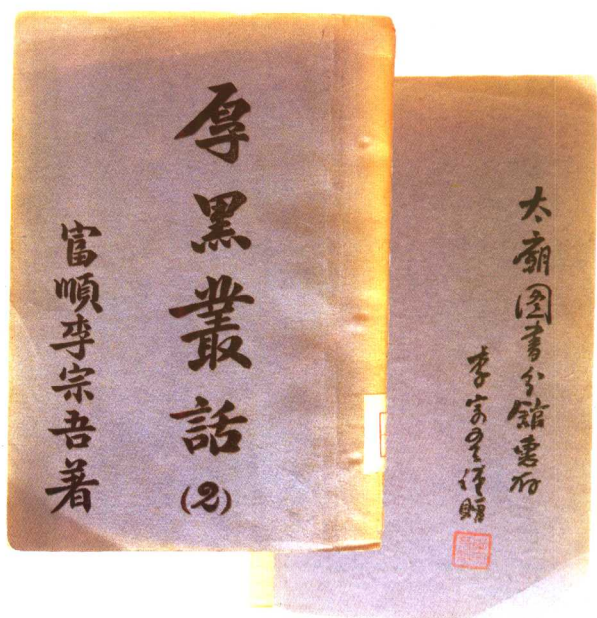 厚黑叢話
(2)
富順李宗吾着
太廟図書分館惠存
李宗吾謹贈